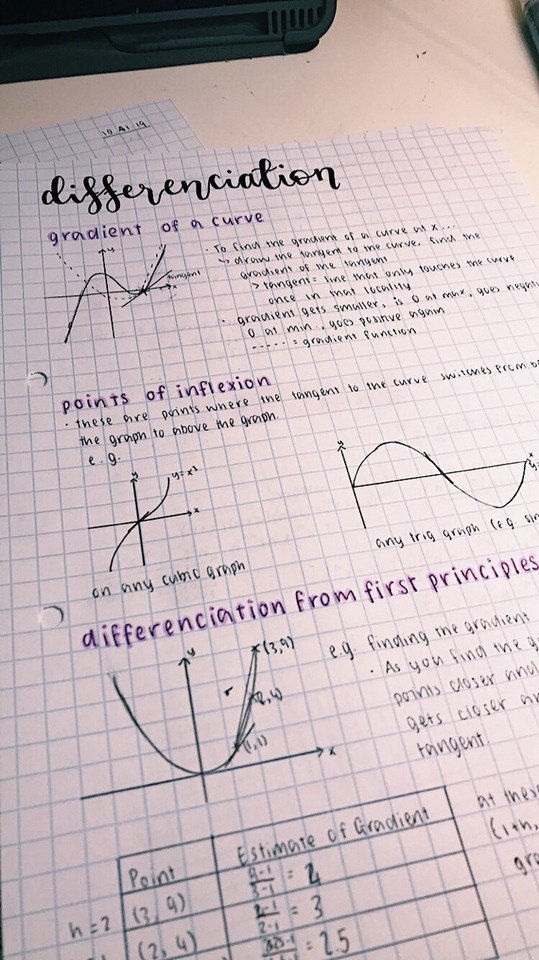 10.41.19
differenciation
gradient of a curve
· To find the gradient of a curve at x...
↳ draw the tangent to the curve, find the
gradient of the tangent
> tangent = line that only touches the curve
once in that locality
· gradient gets smaller, is 0 at max, goes negati
0 at min., goes positive again
----- = gradient function
y
tangent
x
points of inflexion
· these are points where the tangent to the curve switches from be
the graph to above the graph.
e.g.
y
y=x³
x
y
x
on any cubic graph
any trig graph (E.g. sin
differenciation from first principles
y
(3,9)
(2,4)
(1,1)
x
e.g. finding the gradient
· As you find the g
points closer and
gets closer an
tangent.
at these
(1+h,
gra
Point
Estimate of Gradient
h=2
(3, 9)
9-1/3-1 = 4
(2, 4)
4-1/2-1 = 3
= 2.5